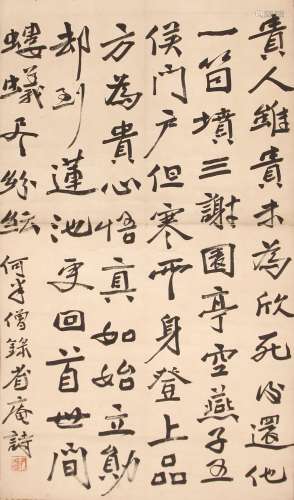 貴人雖貴未為欣死後還他
一箇墳三謝園亭空燕子五
侯門戶但寒雲身登上品
方為貴心悟真如始立勛
却到蓮池更回首世間
螻蟻尽紛紜
何半僧錄省庵詩